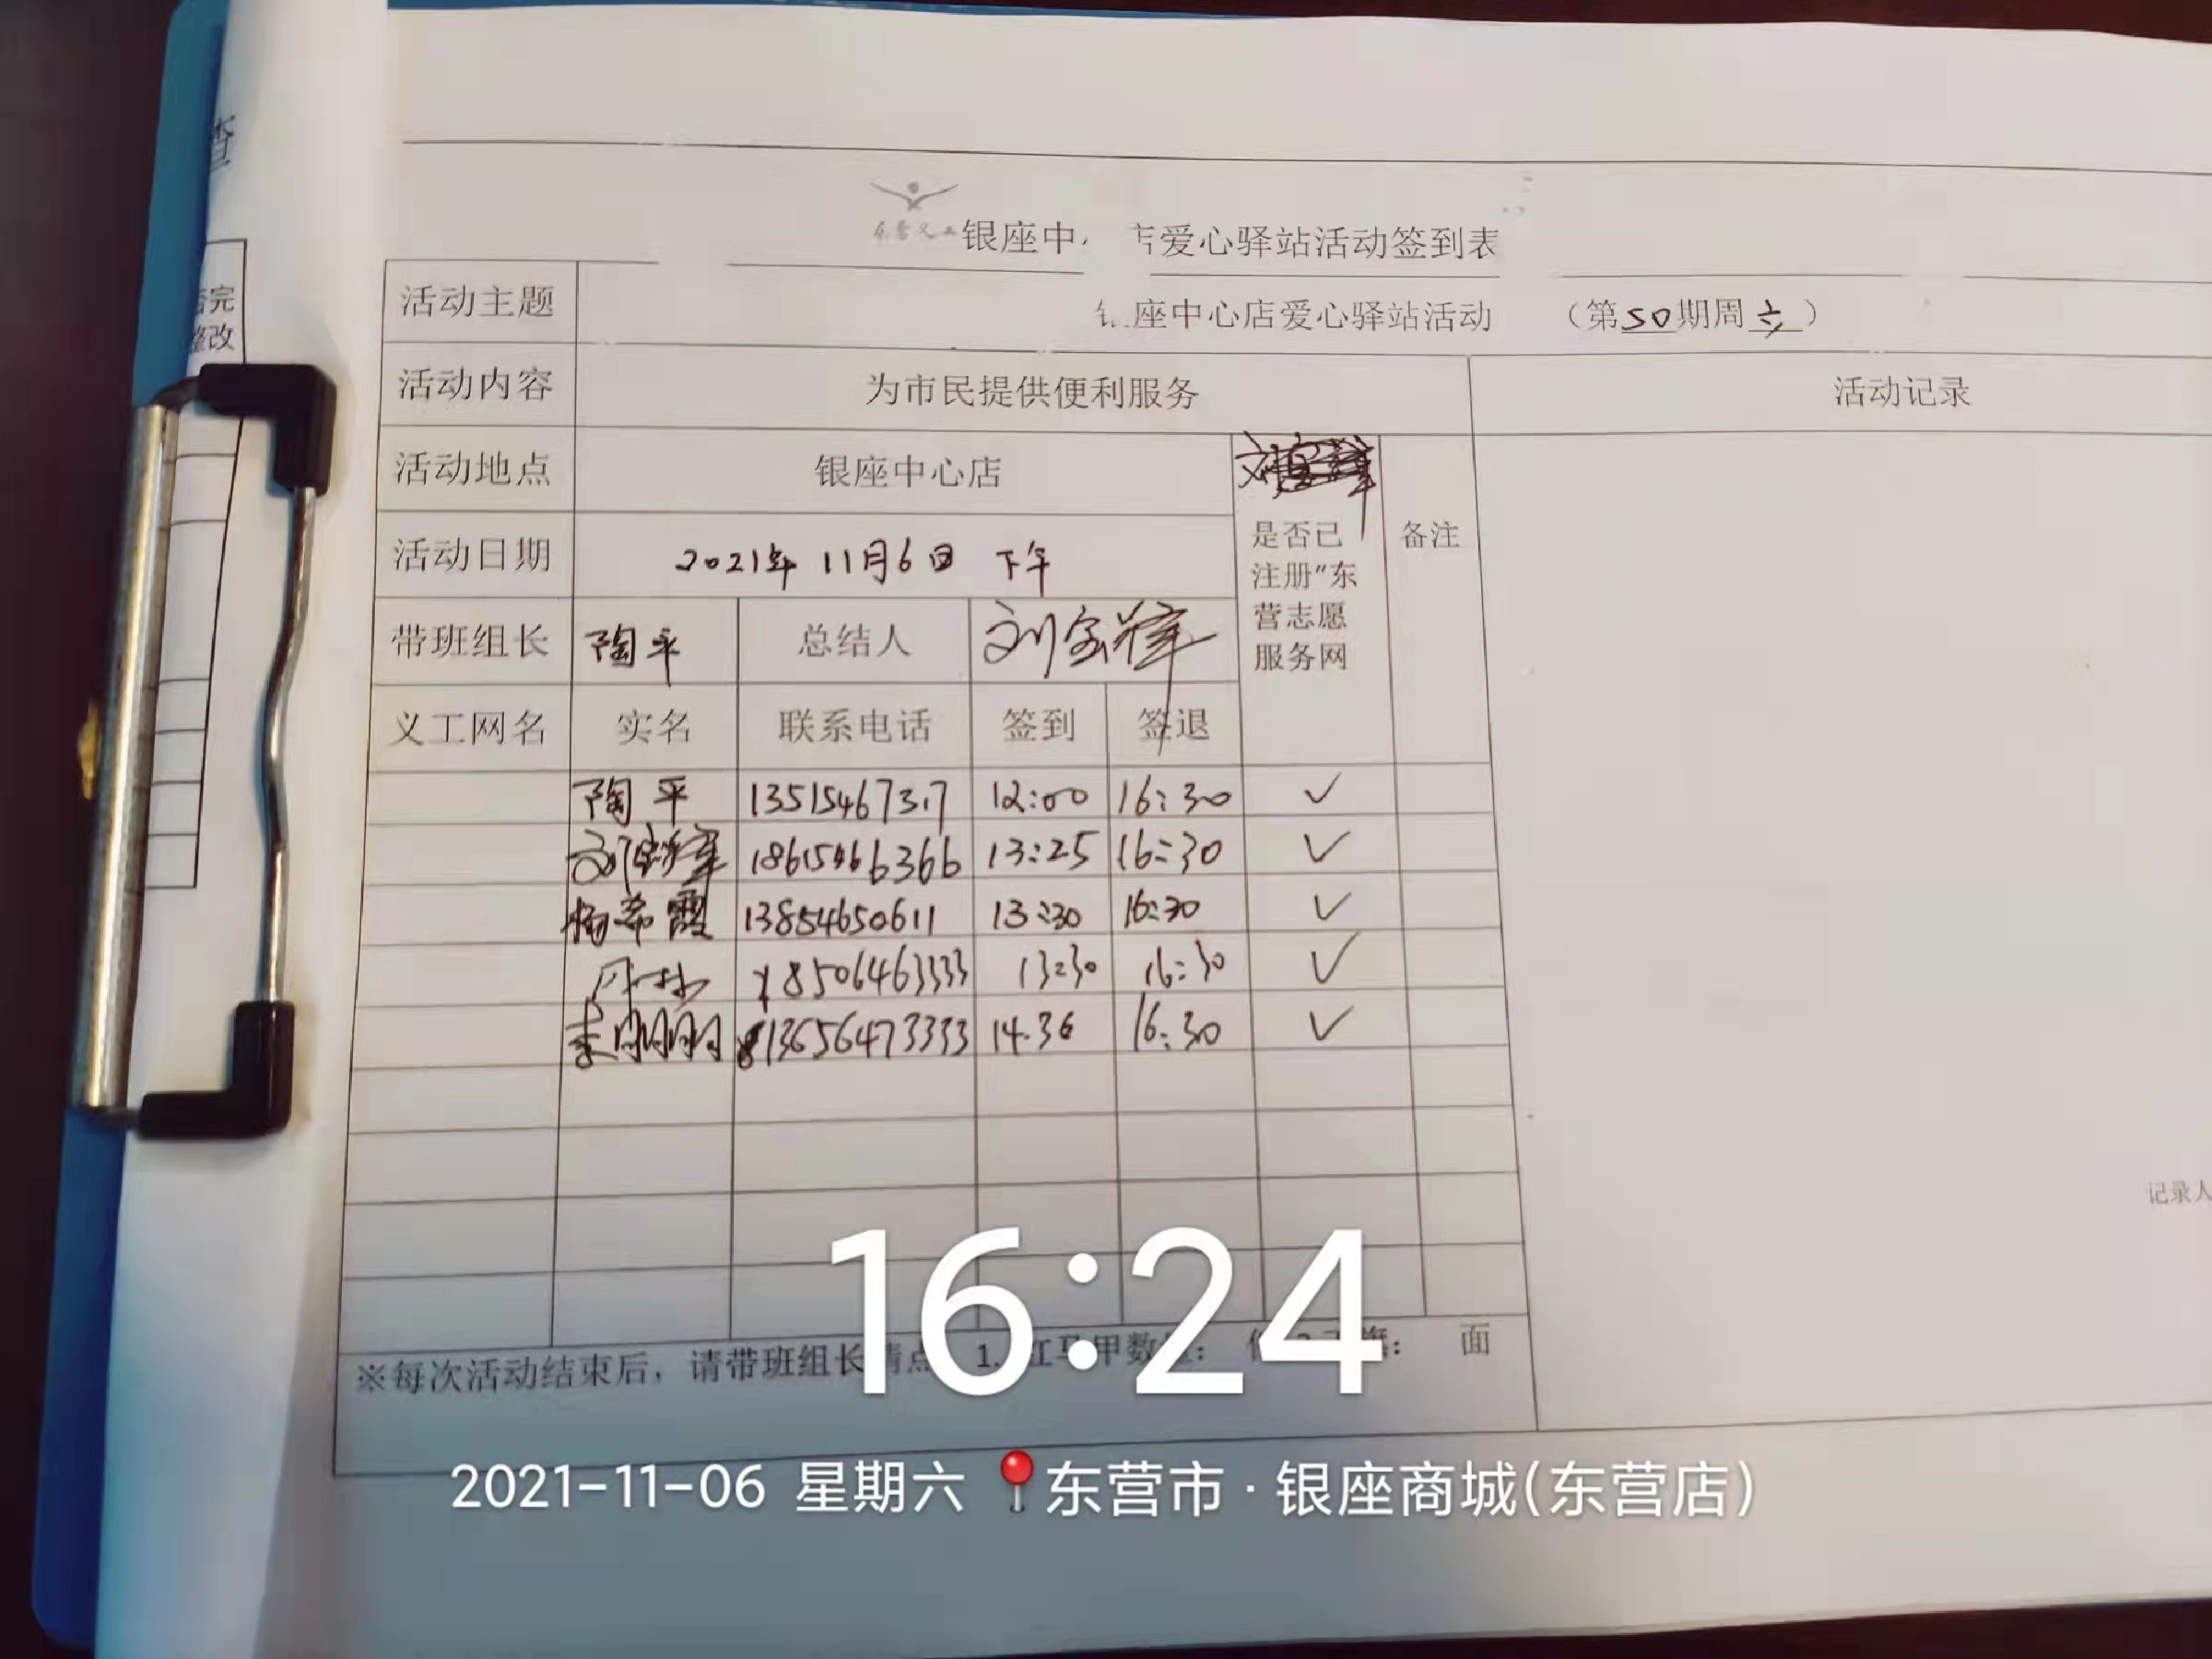 查
完
整改
东营义工 银座中 店爱心驿站活动签到表
活动主题 座中心店爱心驿站活动 （第50期周六）
活动内容 为市民提供便利服务 活动记录
活动地点 银座中心店
活动日期 2021年 11月6日 下午
是否已注册"东营志愿服务网 备注
带班组长 陶平 总结人
义工网名 实名 联系电话 签到 签退
陶平 12:00 16:30 ✓
18615466366 13:25 16:30 ✓
杨希霞 13854650611 13:30 16:30 ✓
18506463333 13:30 16:30 ✓
13656473333 14.36 16:30 ✓
记录人
※每次活动结束后，请带班组长清点 1. 红马甲数 ： ： 面
16:24
2021-11-06 星期六 东营市·银座商城(东营店)